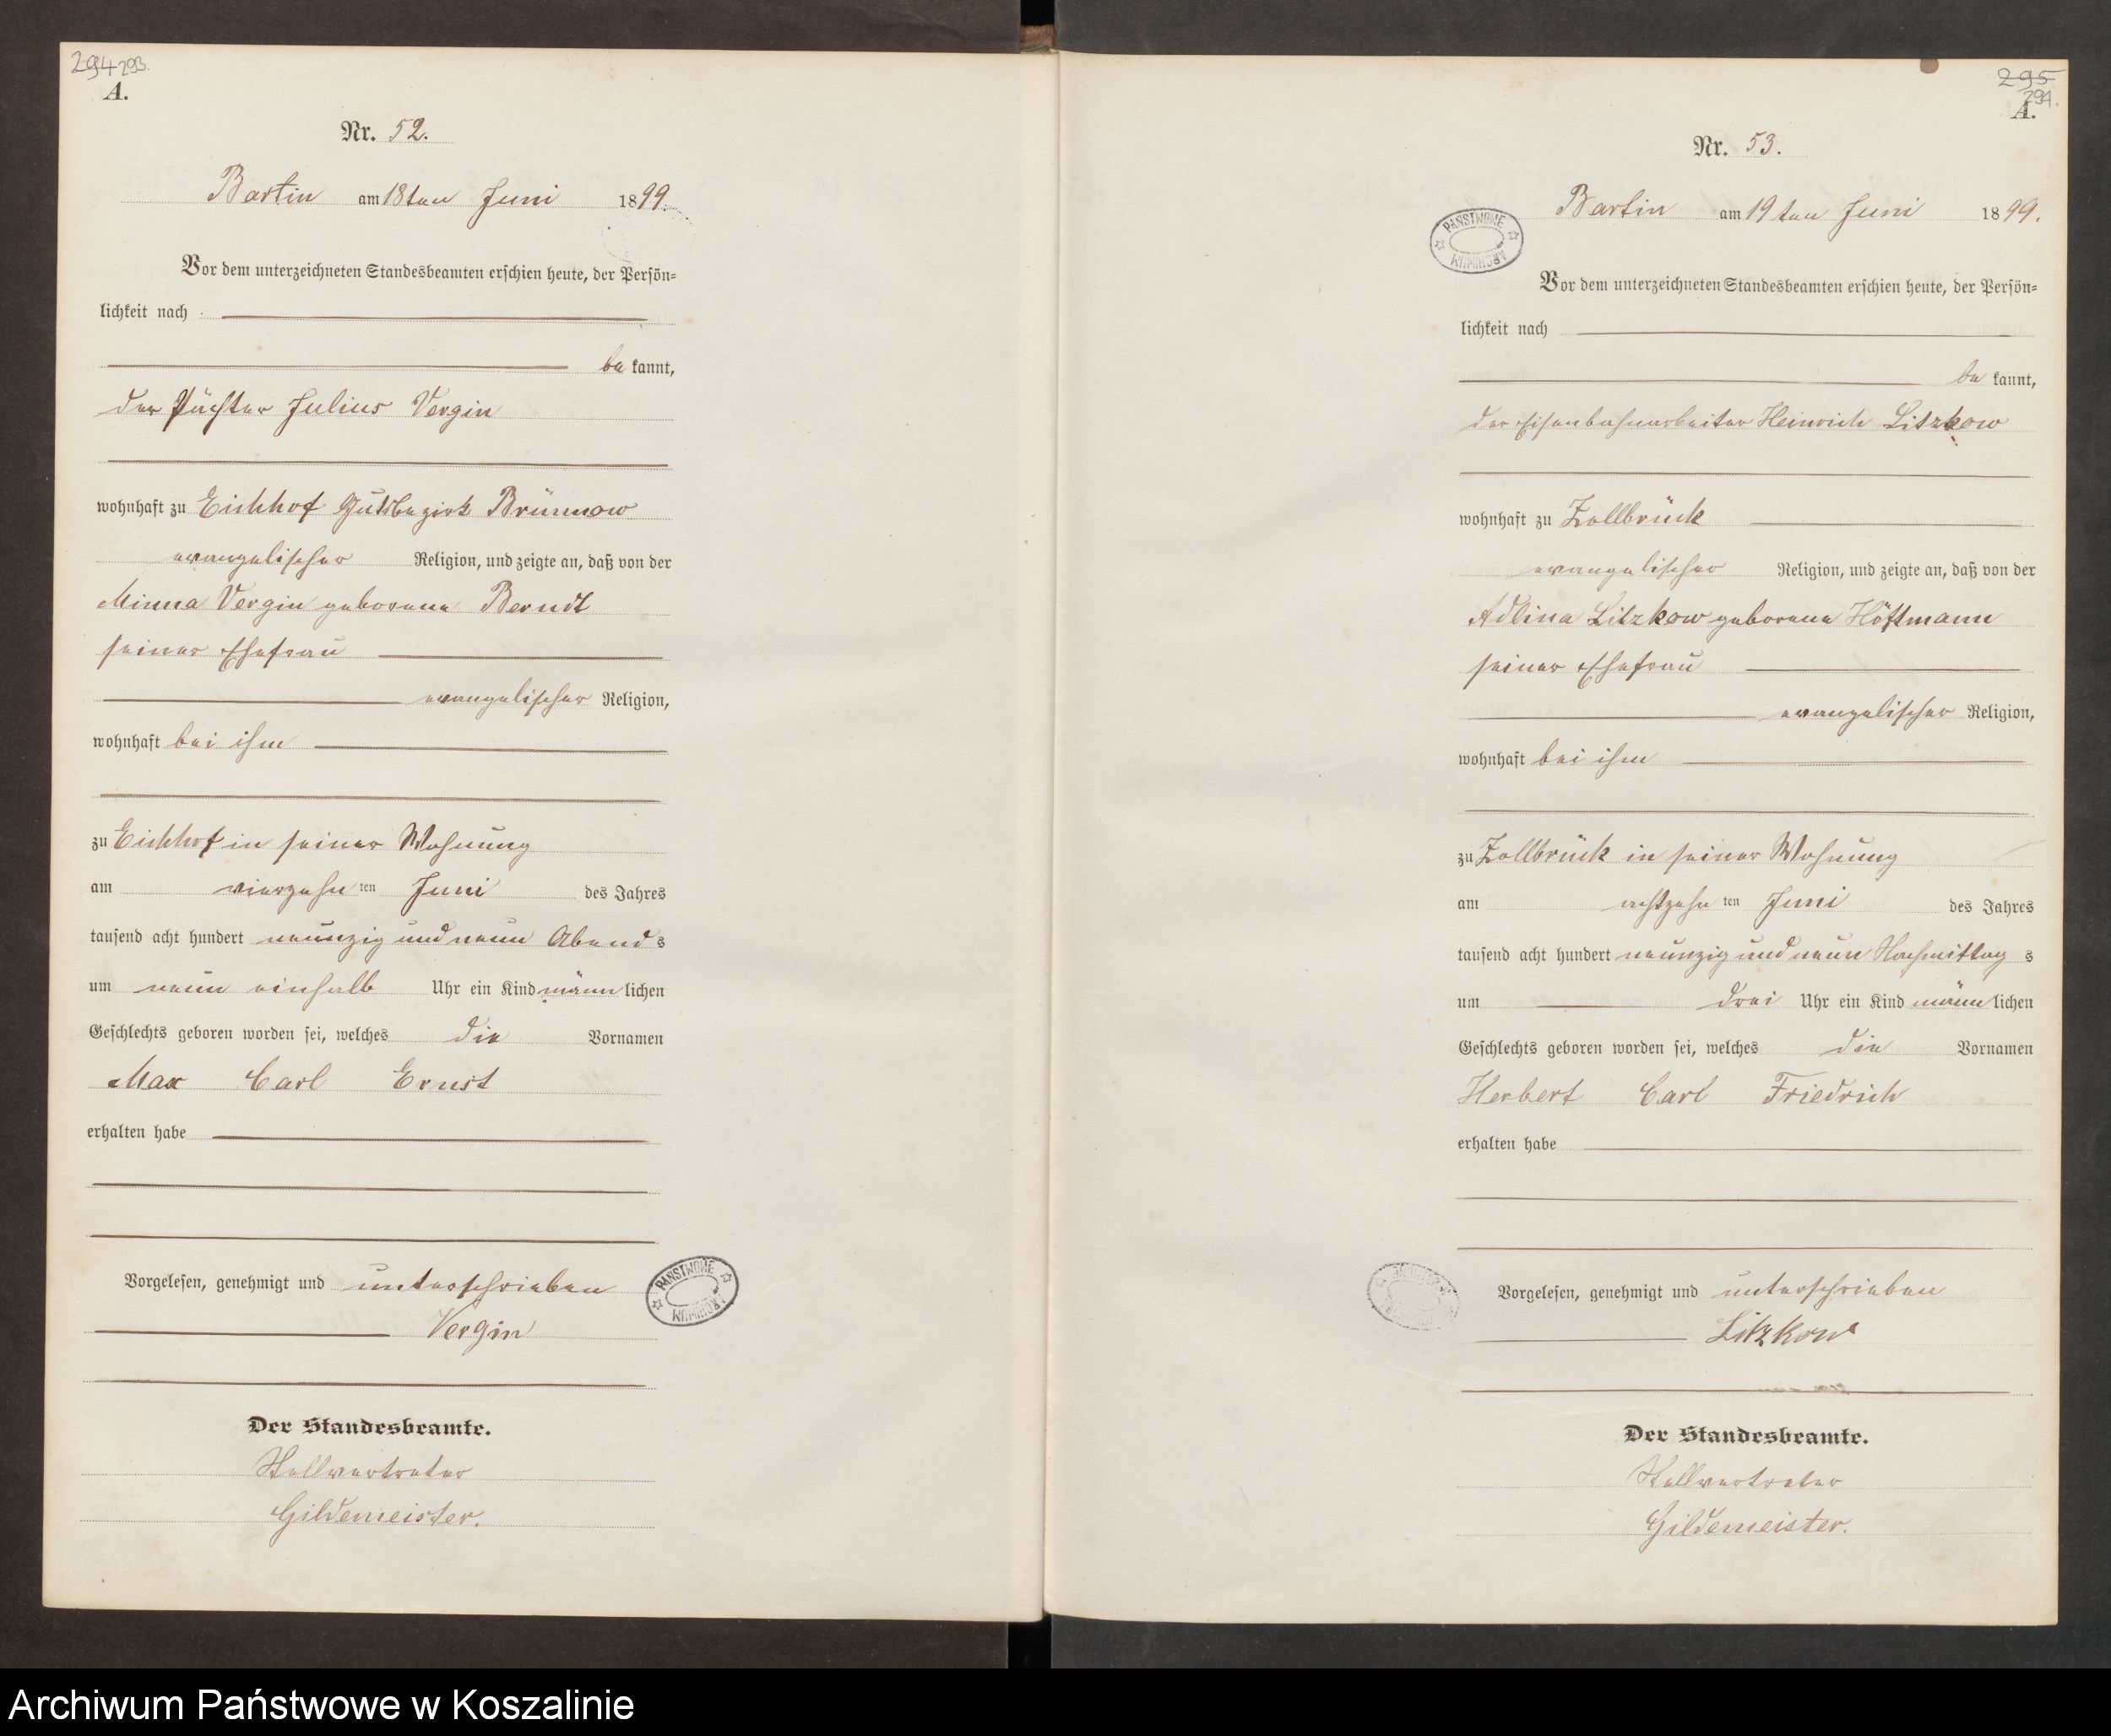 294 293.
A.
Nr. 52.
Bartin am 18ten Juni 1899.
Vor dem unterzeichneten Standesbeamten erschien heute, der Persön=
lichkeit nach
be kannt,
der Pächter Julius Vergin
wohnhaft zu Eichhof Gutsbezirk Brünnow
evangelischer Religion, und zeigte an, daß von der
Minna Vergin geborene Berndt
seiner Ehefrau
evangelischer Religion,
wohnhaft bei ihm
zu Eichhof in seiner Wohnung
am vierzehn ten Juni des Jahres
tausend acht hundert neunzig und neun Abend s
um neun einhalb Uhr ein Kind männ lichen
Geschlechts geboren worden sei, welches die Vornamen
Max Carl Ernst
erhalten habe
Vorgelesen, genehmigt und unterschrieben
Vergin
PAŃSTWOWE ARCHIWUM
Der Standesbeamte.
Stellvertreter
Gildemeister.
295
294.
A.
Nr. 53.
PAŃSTWOWE ARCHIWUM
Bartin am 19ten Juni 1899.
Vor dem unterzeichneten Standesbeamten erschien heute, der Persön=
lichkeit nach
be kannt,
der Eisenbahnarbeiter Heinrich Litzkow
wohnhaft zu Zollbrück
evangelischer Religion, und zeigte an, daß von der
Adlina Litzkow geborene Höftmann
seiner Ehefrau
evangelischer Religion,
wohnhaft bei ihm
zu Zollbrück in seiner Wohnung
am achtzehn ten Juni des Jahres
tausend acht hundert neunzig und neun Nachmittag s
um drei Uhr ein Kind männ lichen
Geschlechts geboren worden sei, welches die Vornamen
Herbert Carl Friedrich
erhalten habe
Vorgelesen, genehmigt und unterschrieben
Litzkow
Der Standesbeamte.
Stellvertreter
Gildemeister.
Archiwum Państwowe w Koszalinie